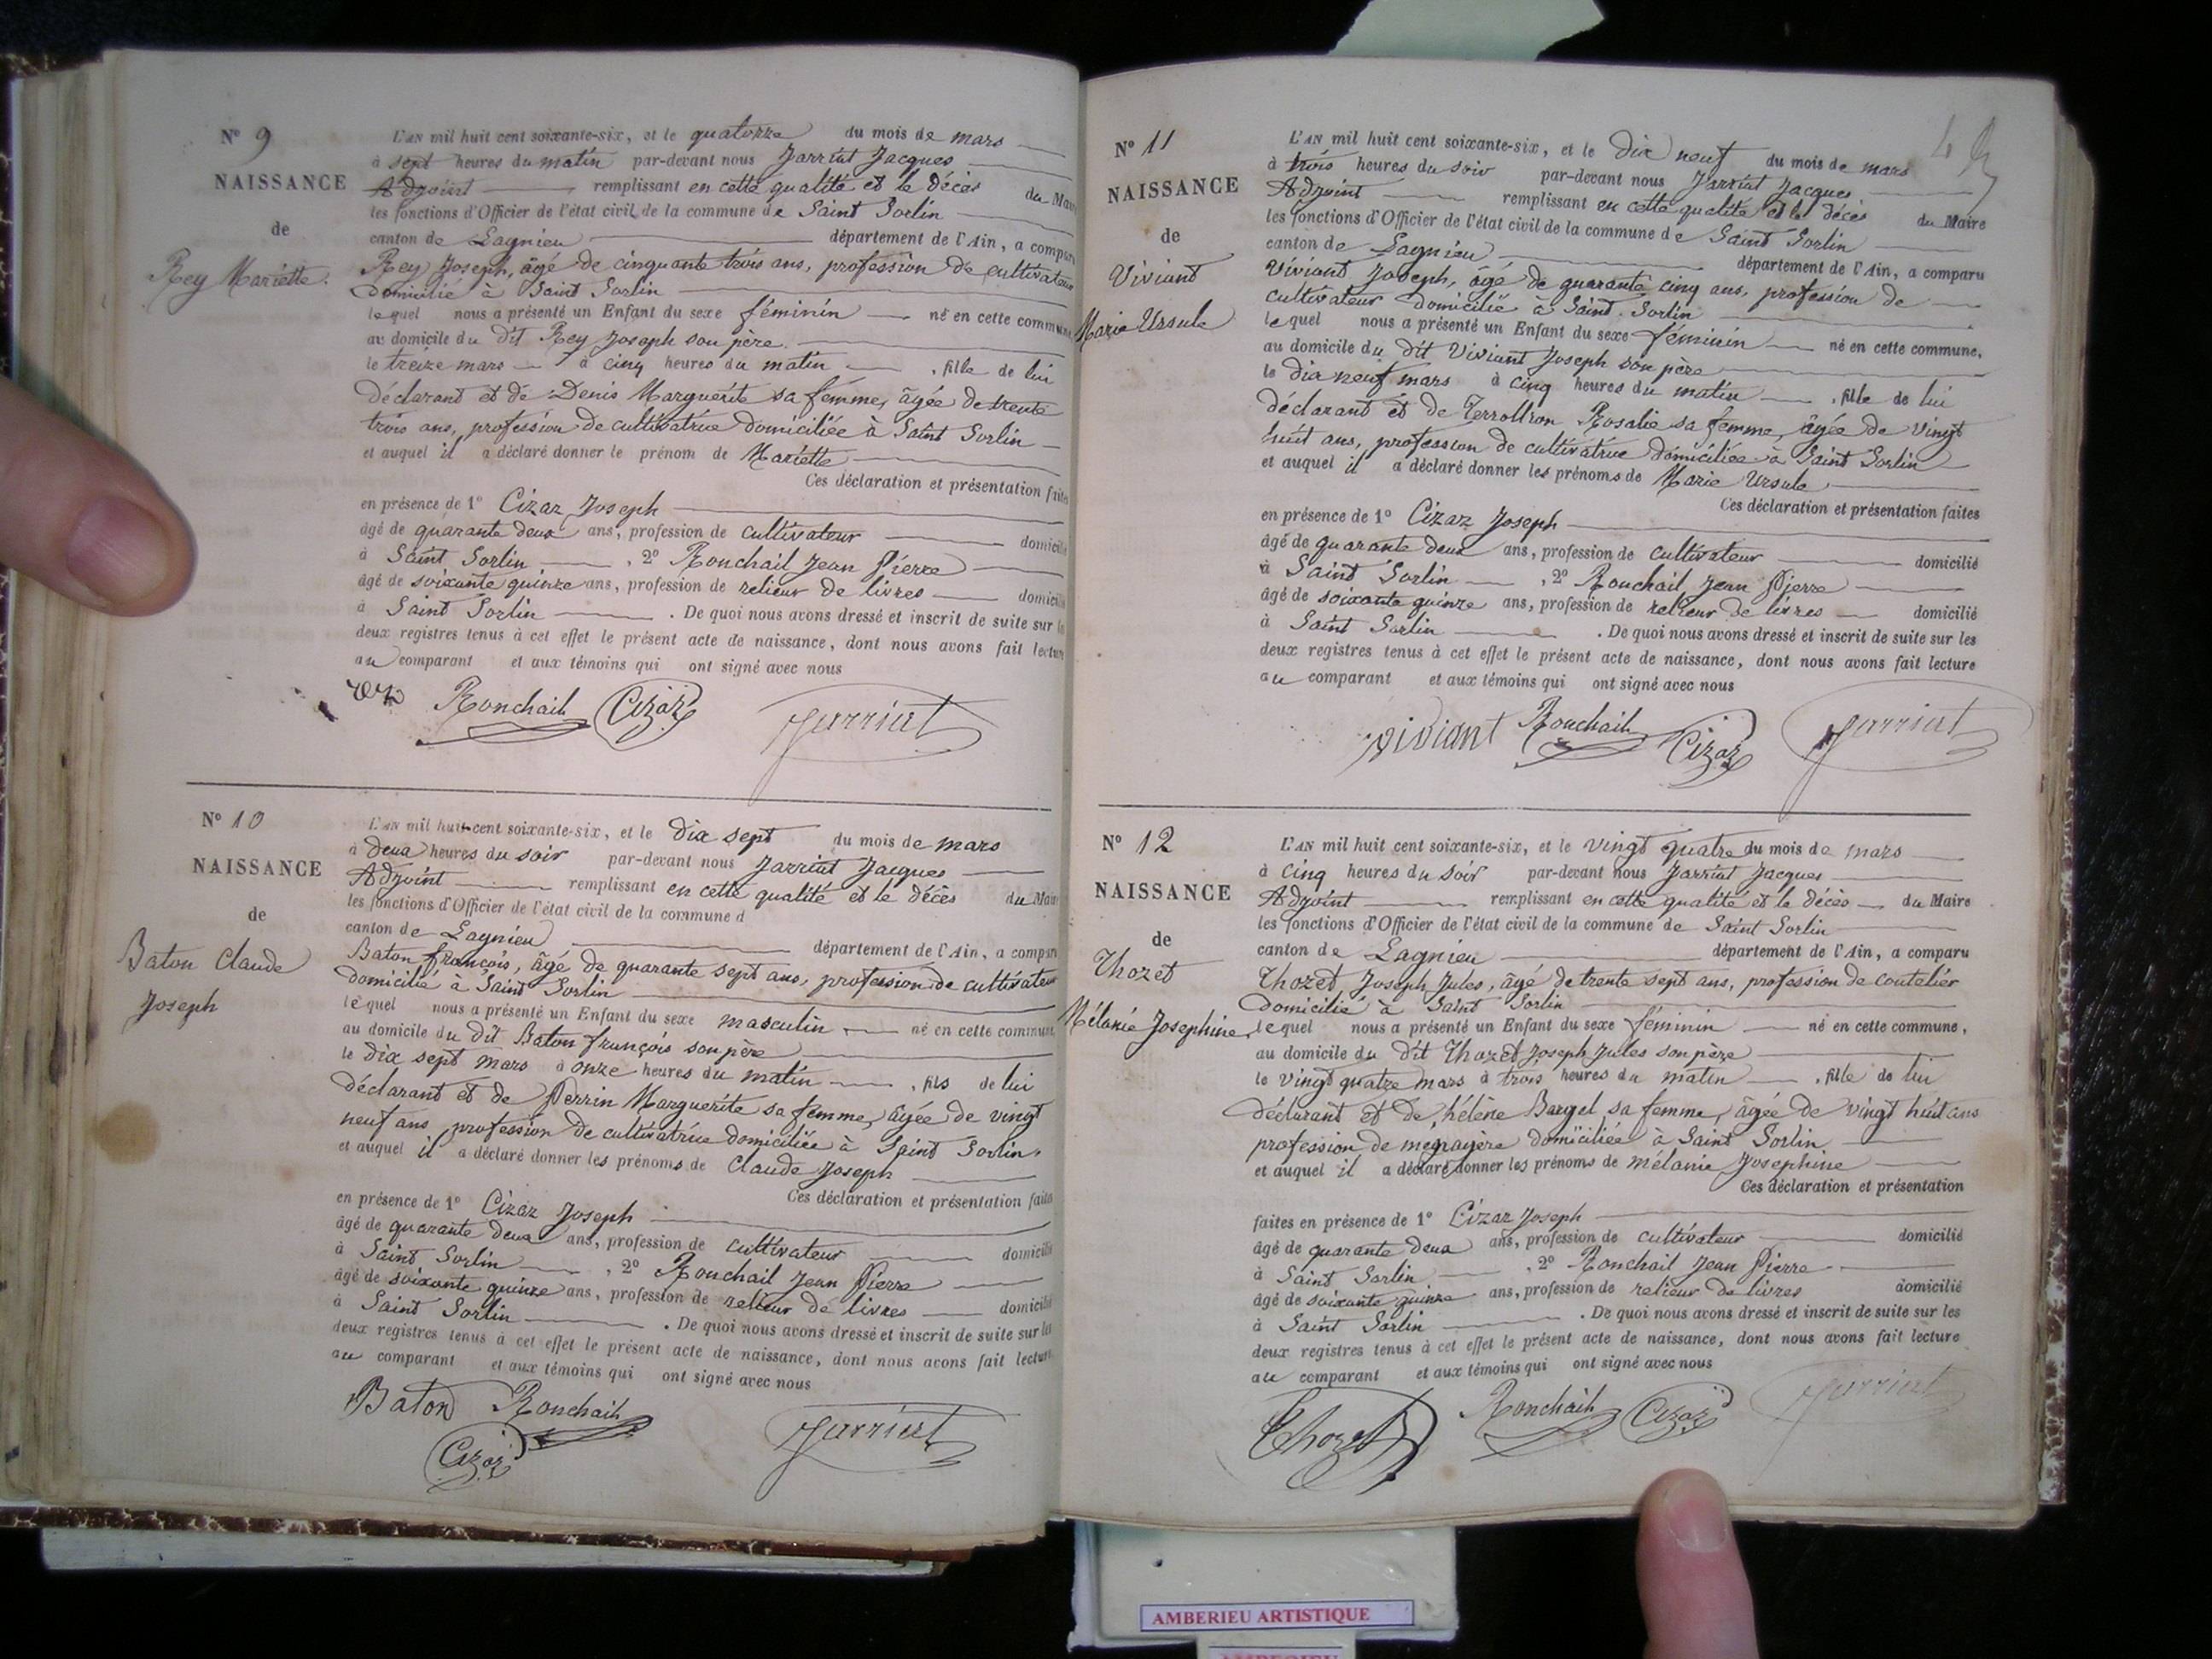 Nº 9
NAISSANCE
de
Rey Mariette.
L'AN mil huit cent soixante-six, et le quatorze du mois de mars
à sept heures du matin par-devant nous Jarriat Jacques
Adjoint remplissant en cette qualité et le décès du Mai
les fonctions d'Officier de l'état civil de la commune de Saint Sorlin
canton de Lagnieu département de l'Ain, a compar
Rey Joseph, âgé de cinquante trois ans, profession de cultivateur
domicilié à Saint Sorlin
lequel nous a présenté un Enfant du sexe féminin né en cette commun
au domicile du dit Rey Joseph son père.
le treize mars à cinq heures du matin , fille de lui
déclarant et de Denis Marguerite sa femme, âgée de trente
trois ans, profession de cultivatrice domiciliée à Saint Sorlin
et auquel il a déclaré donner le prénom de Mariette
Ces déclaration et présentation faites
en présence de 1º Cizaz Joseph
âgé de quarante deux ans, profession de cultivateur domicili
à Saint Sorlin , 2º Ronchail Jean Pierre
âgé de soixante quinze ans, profession de relieur de livres domicili
à Saint Sorlin . De quoi nous avons dressé et inscrit de suite sur l
deux registres tenus à cet effet le présent acte de naissance, dont nous avons fait lecture
au comparant et aux témoins qui ont signé avec nous
Ronchail Cizaz Jarriat
Nº 10
NAISSANCE
de
Baton Claude
Joseph
L'AN mil huit cent soixante-six, et le dix sept du mois de mars
à deux heures du soir par-devant nous Jarriat Jacques
Adjoint remplissant en cette qualité et le décès du Mair
les fonctions d'Officier de l'état civil de la commune d
canton de Lagnieu département de l'Ain, a compar
Baton françois, âgé de quarante sept ans, profession de cultivateur
domicilié à Saint Sorlin
lequel nous a présenté un Enfant du sexe masculin né en cette commun
au domicile du dit Baton françois son père
le dix sept mars à onze heures du matin , fils de lui
déclarant et de Perrin Marguerite sa femme, âgée de vingt
neuf ans profession de cultivatrice domiciliée à Saint Sorlin,
et auquel il a déclaré donner les prénoms de Claude Joseph
Ces déclaration et présentation faites
en présence de 1º Cizaz Joseph
âgé de quarante deux ans, profession de cultivateur domicili
à Saint Sorlin , 2º Ronchail Jean Pierre
âgé de soixante quinze ans, profession de relieur de livres domicili
à Saint Sorlin . De quoi nous avons dressé et inscrit de suite sur les
deux registres tenus à cet effet le présent acte de naissance, dont nous avons fait lecture
au comparant et aux témoins qui ont signé avec nous
Baton Ronchail
Cizaz Jarriat
Nº 11
NAISSANCE
de
Viviant
Marie Ursule
L'AN mil huit cent soixante-six, et le dix neuf du mois de mars
à trois heures du soir par-devant nous Jarriat Jacques
Adjoint remplissant en cette qualité et le décès du Maire
les fonctions d'Officier de l'état civil de la commune de Saint Sorlin
canton de Lagnieu département de l'Ain, a comparu
Viviant Joseph, âgé de quarante cinq ans, profession de
cultivateur domicilié à Saint Sorlin
lequel nous a présenté un Enfant du sexe féminin né en cette commune,
au domicile du dit Viviant Joseph son père
le dix neuf mars à cinq heures du matin , fille de lui
déclarant et de Terrollion Rosalie sa femme, âgée de vingt
huit ans, profession de cultivatrice domiciliée à Saint Sorlin
et auquel il a déclaré donner les prénoms de Marie Ursule
Ces déclaration et présentation faites
en présence de 1º Cizaz Joseph
âgé de quarante deux ans, profession de cultivateur domicilié
à Saint Sorlin , 2º Ronchail Jean Pierre
âgé de soixante quinze ans, profession de relieur de livres domicilié
à Saint Sorlin . De quoi nous avons dressé et inscrit de suite sur les
deux registres tenus à cet effet le présent acte de naissance, dont nous avons fait lecture
au comparant et aux témoins qui ont signé avec nous
viviant Ronchail Cizaz Jarriat
Nº 12
NAISSANCE
de
Thozet
Mélanie Josephine
L'AN mil huit cent soixante-six, et le vingt quatre du mois de mars
à cinq heures du soir par-devant nous Jarriat Jacques
Adjoint remplissant en cette qualité et le décès du Maire
les fonctions d'Officier de l'état civil de la commune de Saint Sorlin
canton de Lagnieu département de l'Ain, a comparu
Thozet Joseph Jules, âgé de trente sept ans, profession de coutelier
domicilié à Saint Sorlin
lequel nous a présenté un Enfant du sexe féminin né en cette commune,
au domicile du dit Thozet Joseph Jules son père
le vingt quatre mars à trois heures du matin , fille de lui
déclarant et de hélène Bargel sa femme, âgée de vingt huit ans
profession de menagère domiciliée à Saint Sorlin
et auquel il a déclaré donner les prénoms de mélanie Josephine
Ces déclaration et présentation
faites en présence de 1º Cizaz Joseph
âgé de quarante deux ans, profession de cultivateur domicilié
à Saint Sorlin , 2º Ronchail Jean Pierre
âgé de soixante quinze ans, profession de relieur de livres domicilié
à Saint Sorlin . De quoi nous avons dressé et inscrit de suite sur les
deux registres tenus à cet effet le présent acte de naissance, dont nous avons fait lecture
au comparant et aux témoins qui ont signé avec nous
Thozet Ronchail Cizaz Jarriat
AMBERIEU ARTISTIQUE